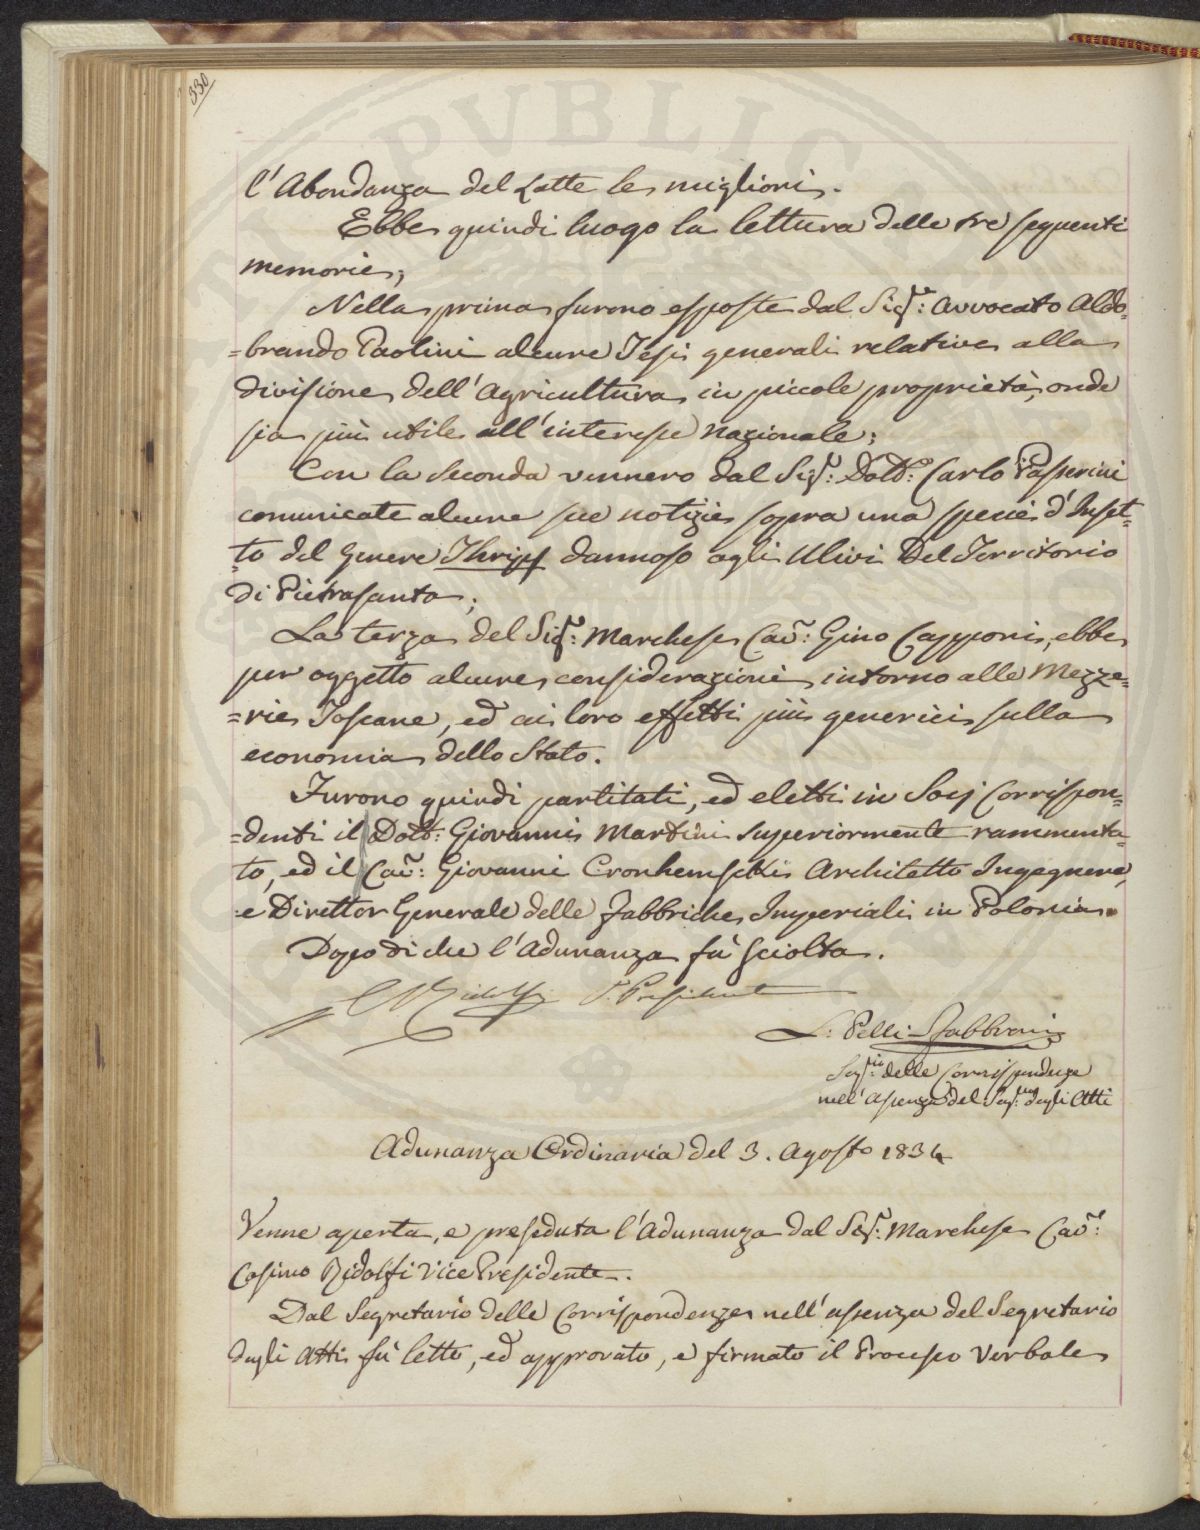 330
l'Abondanza del Latte le migliori.
Ebbe quindi luogo la lettura delle tre seguenti
memorie;
Nella prima furono esposte dal Sig.r: Avvocato Aldo-
=brando Paolini alcune Tesi generali relative alla
divisione dell'Agricultura in piccole proprietà, onde
sia più utile all'interesse Nazionale;
Con la Seconda vennero dal Sig.r: Dott.r: Carlo Passerini
comunicate alcune sue notizie sopra una specie d'Inset-
=to del Genere Thrips dannoso agli Ulivi Del Territorio
di Pietrasanta;
La terza del Sig.r: Marchese Cav: Gino Capponi, ebbe
per oggetto alcune considerazioni intorno alle Mezze=
=rie Toscane, ed ai loro effetti più generici sulla
economia dello Stato.
Furono quindi partitati, ed eletti in Socj Corrispon=
=denti il Dott: Giovanni Martini Superiormente rammenta-
to, ed il Cav: Giovanni Architetto Ingegnere,
e Direttor Generale delle Fabbriche Imperiali in Polonia.
Dopo di che l'Adunanza fù Sciolta.
C Ridolfi V. Presidente
L: Pelli Fabbroni
Seg.rio: delle Corrispondenze
nell'Assenza del Seg.rio degli Atti
Adunanza Ordinaria del 3. Agosto 1834
Venne aperta, e preseduta l'Adunanza dal Sig.r: Marchese Cav.e:
Cosimo Ridolfi Vice Presidente.
Dal Segretario delle Corrispondenze nell'assenza del Segretario
degli Atti fù letto, ed approvato, e firmato il Processo Verbale